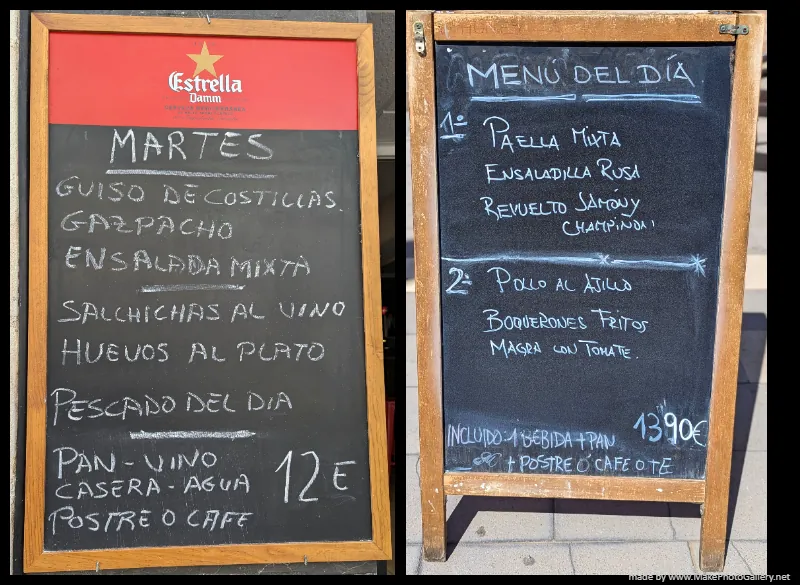 Estrella
Damm
MARTES
GUISO DE COSTILLAS.
GAZPACHO
ENSALADA MIXTA
SALCHICHAS AL VINO
HUEVOS AL PLATO
PESCADO DEL DIA
PAN - VINO
CASERA - AGUA
POSTRE O CAFE
12 E
MENÚ DEL DÍA
1º
PAELLA MIXTA
ENSALADILLA RUSA
REVUELTO JAMÓN Y
CHAMPIÑON
2º
POLLO AL AJILLO
BOQUERONES FRITOS
MAGRA CON TOMATE.
1390€
INCLUIDO: 1 BEBIDA + PAN
+ POSTRE Ó CAFE O TE
made by www.MakePhotoGallery.net